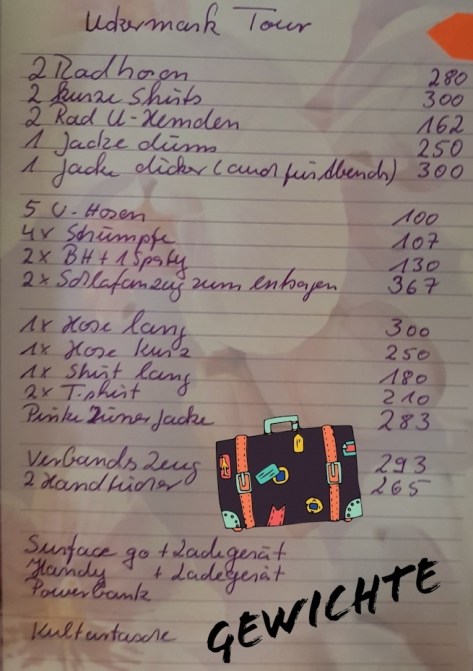 Uckermark Tour
2 Radhosen 280
2 kurze Shirts 300
2 Rad U-Hemden 162
1 Jacke dünn 250
1 Jacke dicker (auch für Abends) 300
5 U-Hosen 100
4x Strümpfe 107
2x BH + 1 Sporty 130
2x Schlafanzug zum entsorgen 367
1x Hose lang 300
1x Hose kurz 250
1x Shirt lang 180
2x T-shirt 210
Pinke Jacke 283
Verbandszeug 293
2 Handtücher 265
Surface go + Ladegerät
Handy + Ladegerät
Powerbank
Kulturtasche
GEWICHTE